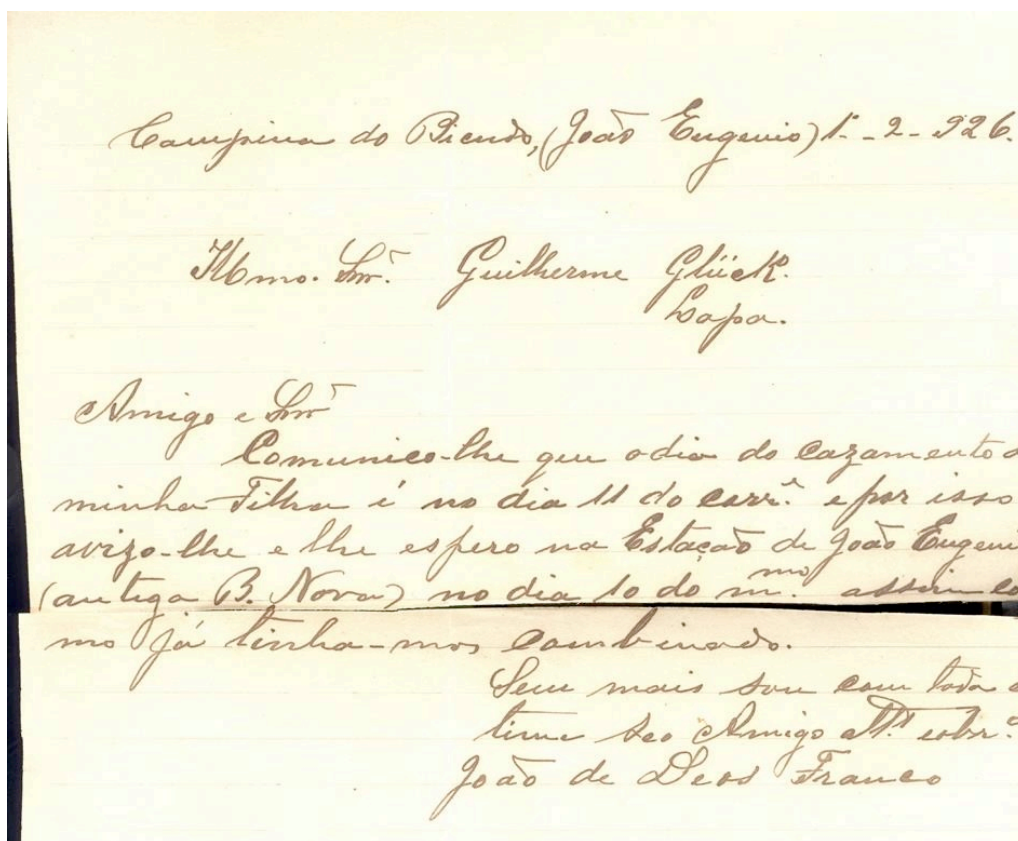 Campina do Biendo, (João Eugenio) 1º - 2 - 926.
Illmo. Snr. Guilherme Glück.
Lapa.
Amigo e Snr
Comunico-lhe que o dia do cazamento
minha Filha é no dia 11 do corrº. e por isso
avizo-lhe e lhe espero na Estação de João Eugeni
(antiga B. Nova) no dia 10 do mmo. assim co
mo já tinha-mos combinado.
Sem mais sou com toda
time seo Amigo Attº. obrº.
João de Deos Franco